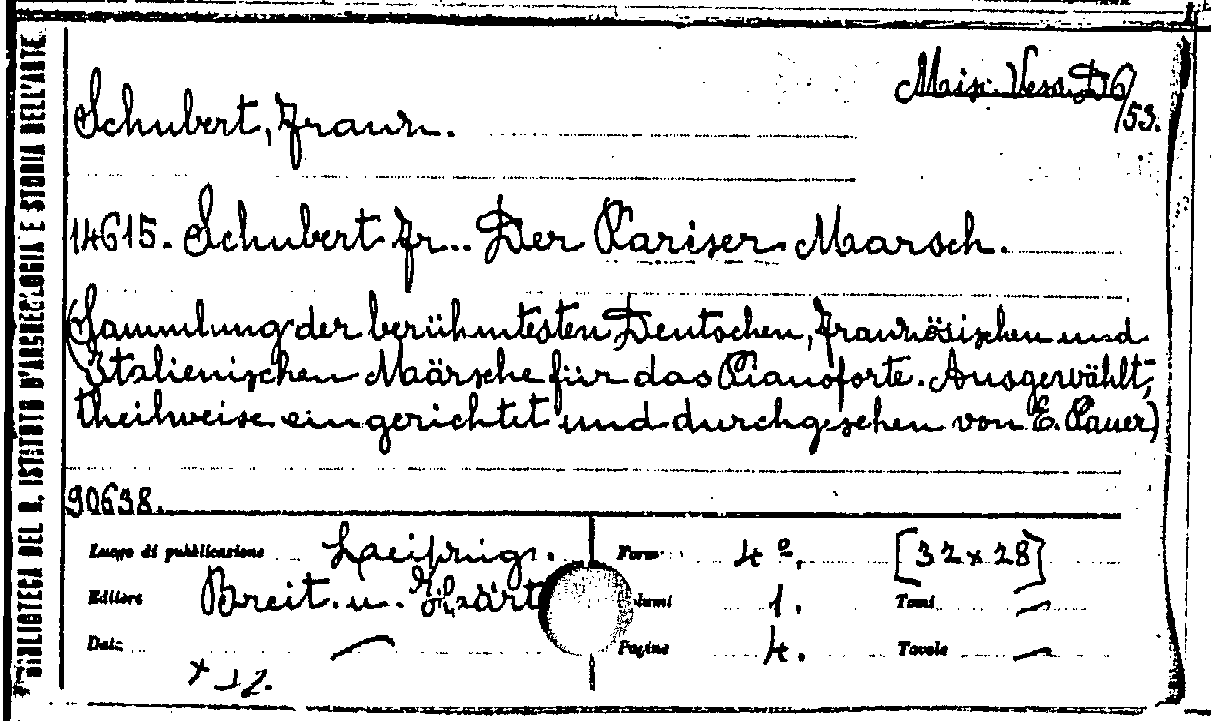 BIBLIOTECA DEL R. ISTITUTO D'ARCHEOLOGIA E STORIA DELL'ARTE
Mus. Vess. D 6/53.
Schubert, Franz.
14615. Schubert Fr.. Der Pariser Marsch.
(Sammlung der berühmtesten Deutschen, Französischen und
Italienischen Maärsche für das Pianoforte. Ausgewählt,
theilweise eingerichtet und durchgesehen von E. Pauer)
90698.
Luogo di pubblicazione Laeipzig. Form 4º. [32 x 28]
Editore Breit. u. Härt lumi 1. Tomi —
Data — Pagine 4. Tavole —